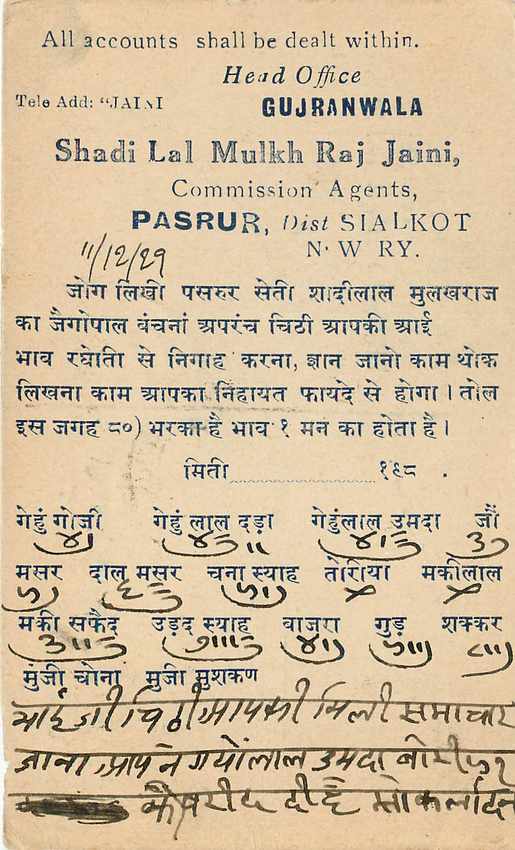 All accounts shall be dealt within.
Head Office
Tele Add: "JAINI
GUJRANWALA
Shadi Lal Mulkh Raj Jaini,
Commission Agents,
PASRUR, Dist SIALKOT
N. W RY.
11/12/29
जोग लिखी पसरुर सेती शादीलाल मुलखराज
का जैगोपाल बंचनां अपरंच चिठी आपकी आई
भाव रघोती से निगाह करना, ज्ञान जानो काम थोक
लिखना काम आपका निहायत फायदे से होगा । तोल
इस जगह ८०) भरका है भाव १ मन का होता है ।
मिती १९८ .
गेहुं गोजी गेहुं लाल दड़ा गेहुंलाल उमदा जौं
मसर दाल मसर चना स्याह तोरिया मकीलाल
मकी सफैद उड़द स्याह बाजरा गुड़ शक्कर
मुंजी चोना मुजी मुशकण
भाई जी चिठी आपकी मिली समाचार
जाना आपने गयोंलाल उमदा बोरी